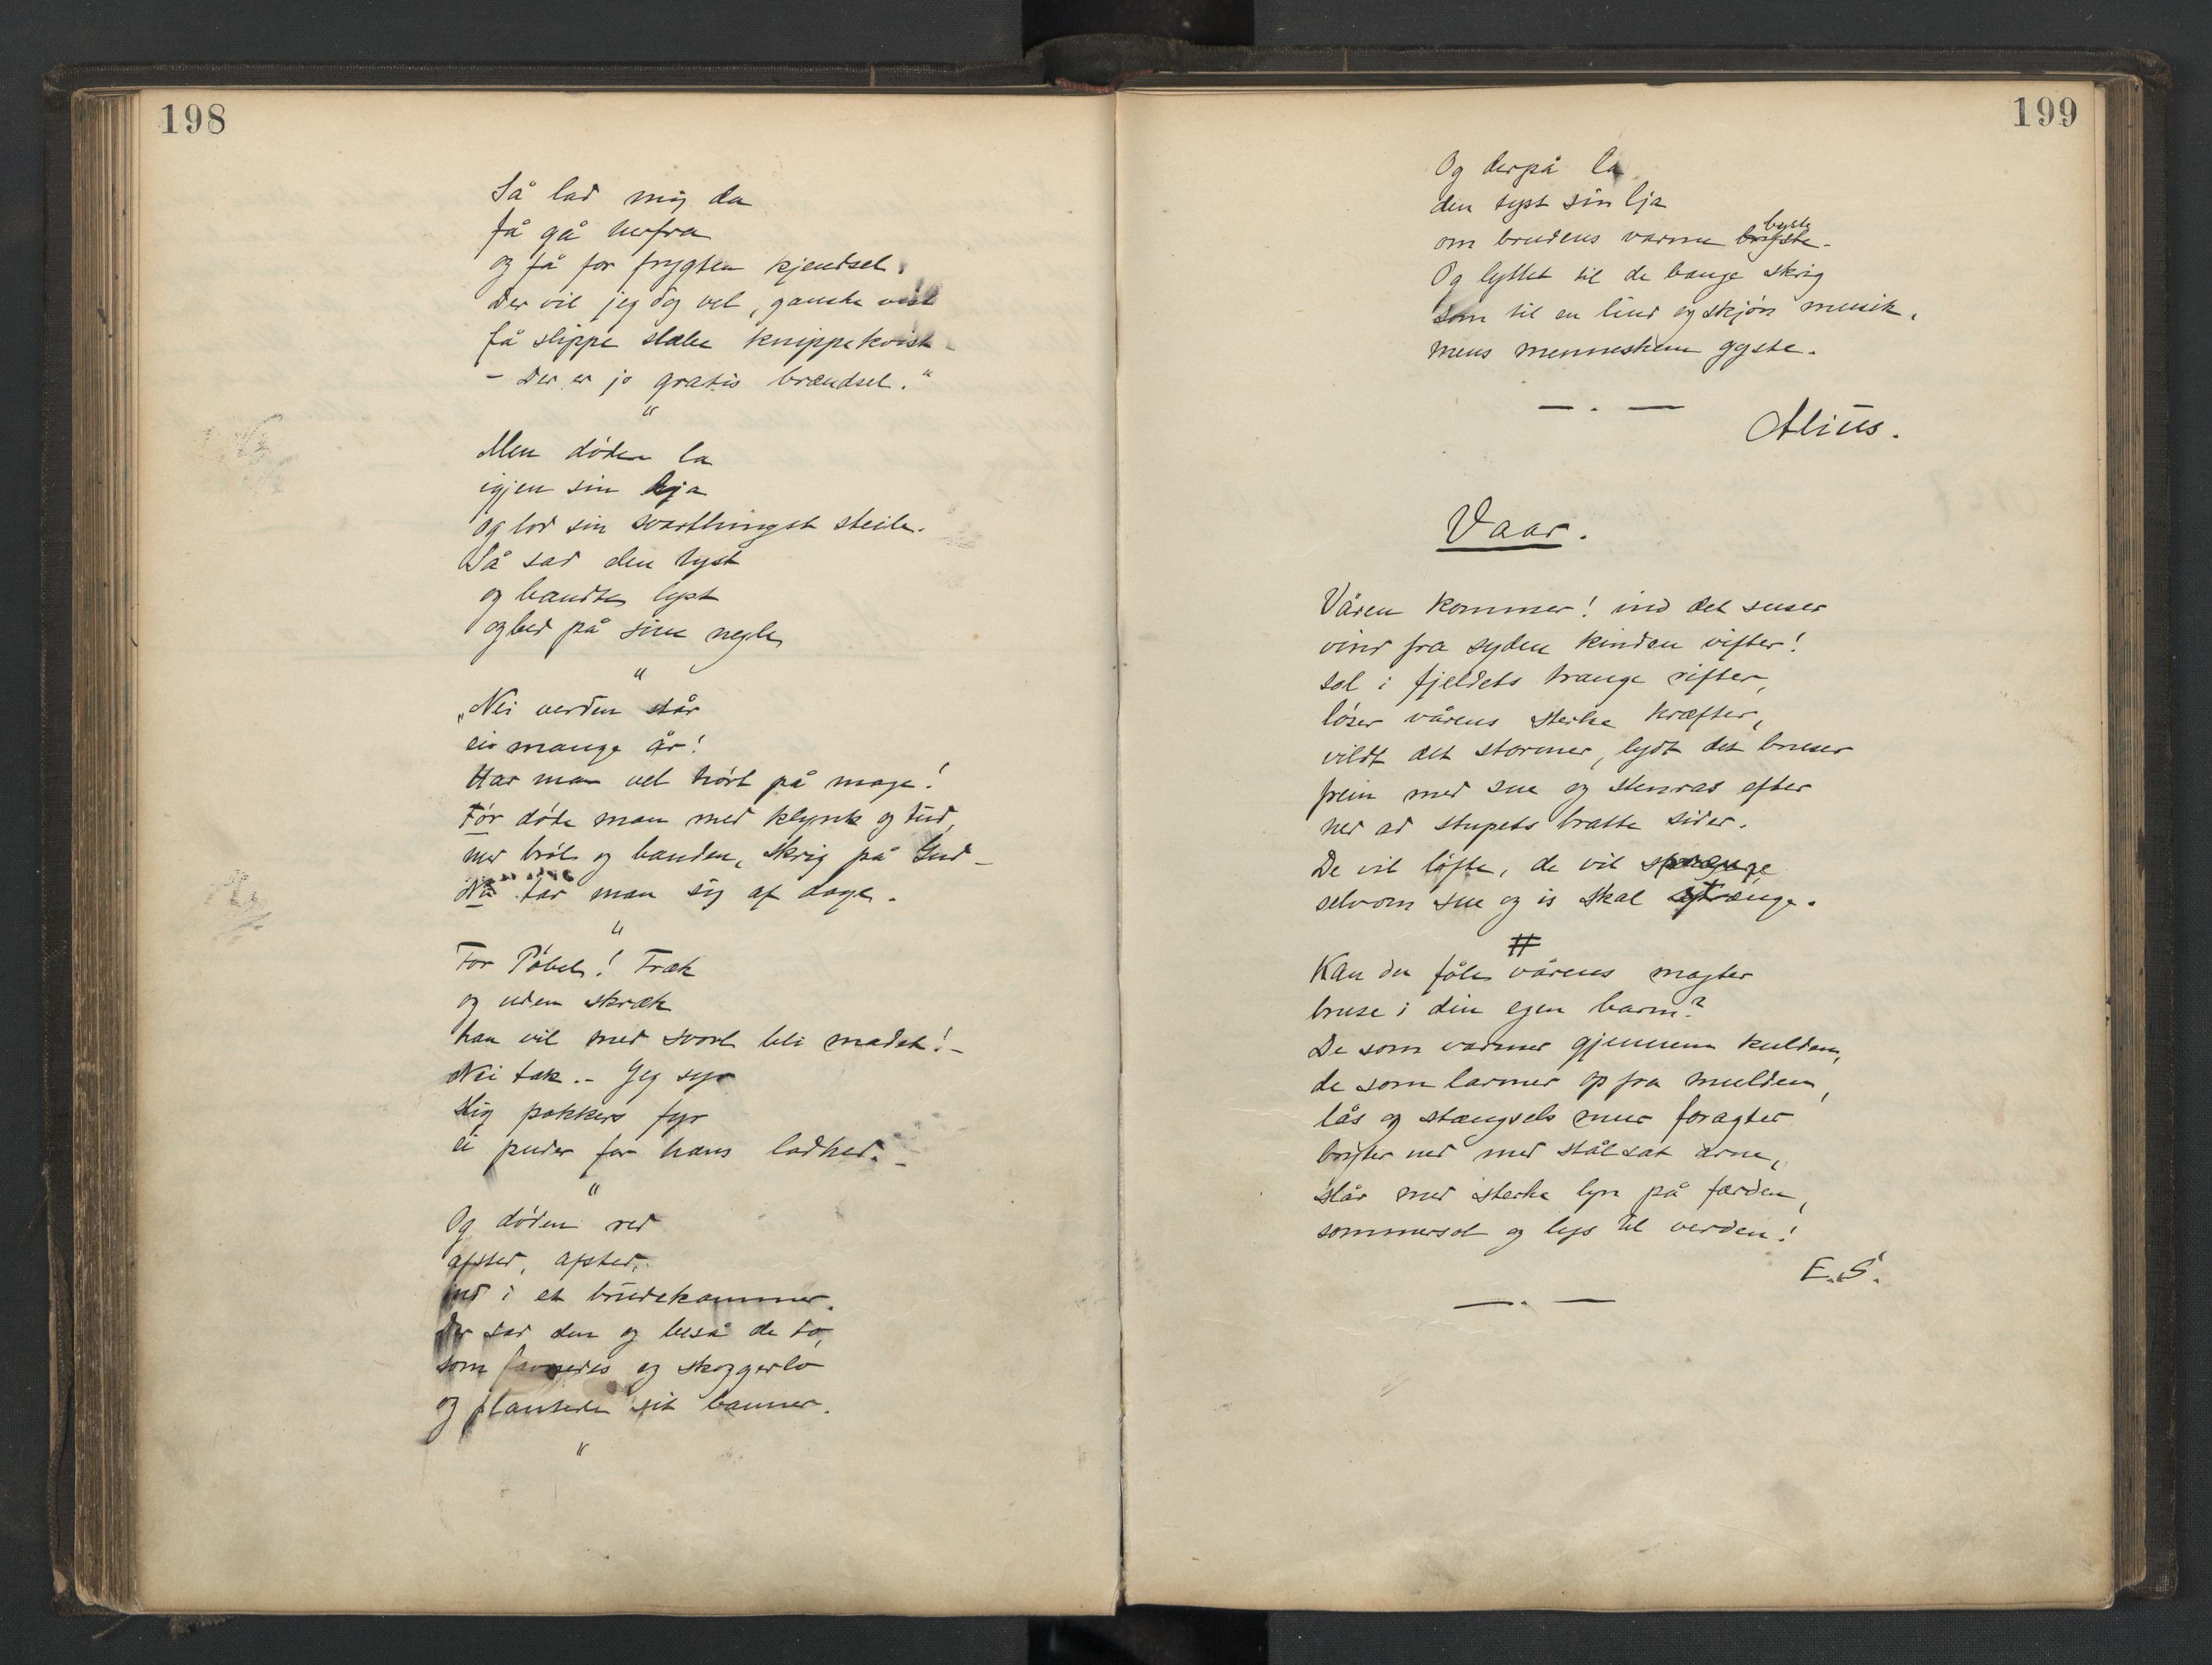 198
Så lad mig da
få gå herfra
og få for frygten kjendsel.
Der vil jeg dog vel, ganske vist
få slippe slæbe knippekvist -
- Der er jo gratis brændsel."
"
Men døden la
igjen sin lja
og lod sin svarthingst steile.
Så sad den tyst
og bandte lyst
og bed på sine negle
"
„Nei verden står
ei mange år!
Har man vel hørt på mage!
Før døde man med klynk og tud,
med brøl og banden, skrig på Gud -
Nu tar man sig af dage.
"
For Pøbel! Træk
og uden skræk
han vil med svovl bli madet! -
Nei tak. - Jeg syr
slig pokkers fyr
ei puder for hans ladhed. -
"
Og døden red
afsted, afsted,
ind i et brudekammer.
Der sad den og beså de to,
som favnedes og skoggerlo
og plantede sit banner.
"
199
Og derpå la
den tyst sin lja
om brudens varme bryste -
byste
Og lyttet til de bange skrig
som til en lind og skjøn musik,
mens menneskene gyste.
— . —
Alius.
Vaar.
Våren kommer! ind det suser
vind fra syden kinden vifter!
sol i fjeldets trange rifter,
løser vårens sterke kræfter,
vildt det stormer, lydt det bruser
frem med sne og stenras efter
ned ad stupets bratte sider.
De vil løfte, de vil sprænge
selvom sne og is skal
#
Kan du føle vårens magter
bruse i din egen barm?
De som varmer gjennem kulden,
de som larmer op fra mulden,
lås og stængsels mur foragter
bryter ned med stålsat arme,
slår med sterke lyn på færden,
sommersol og lys til verden!
E.S.
— . —